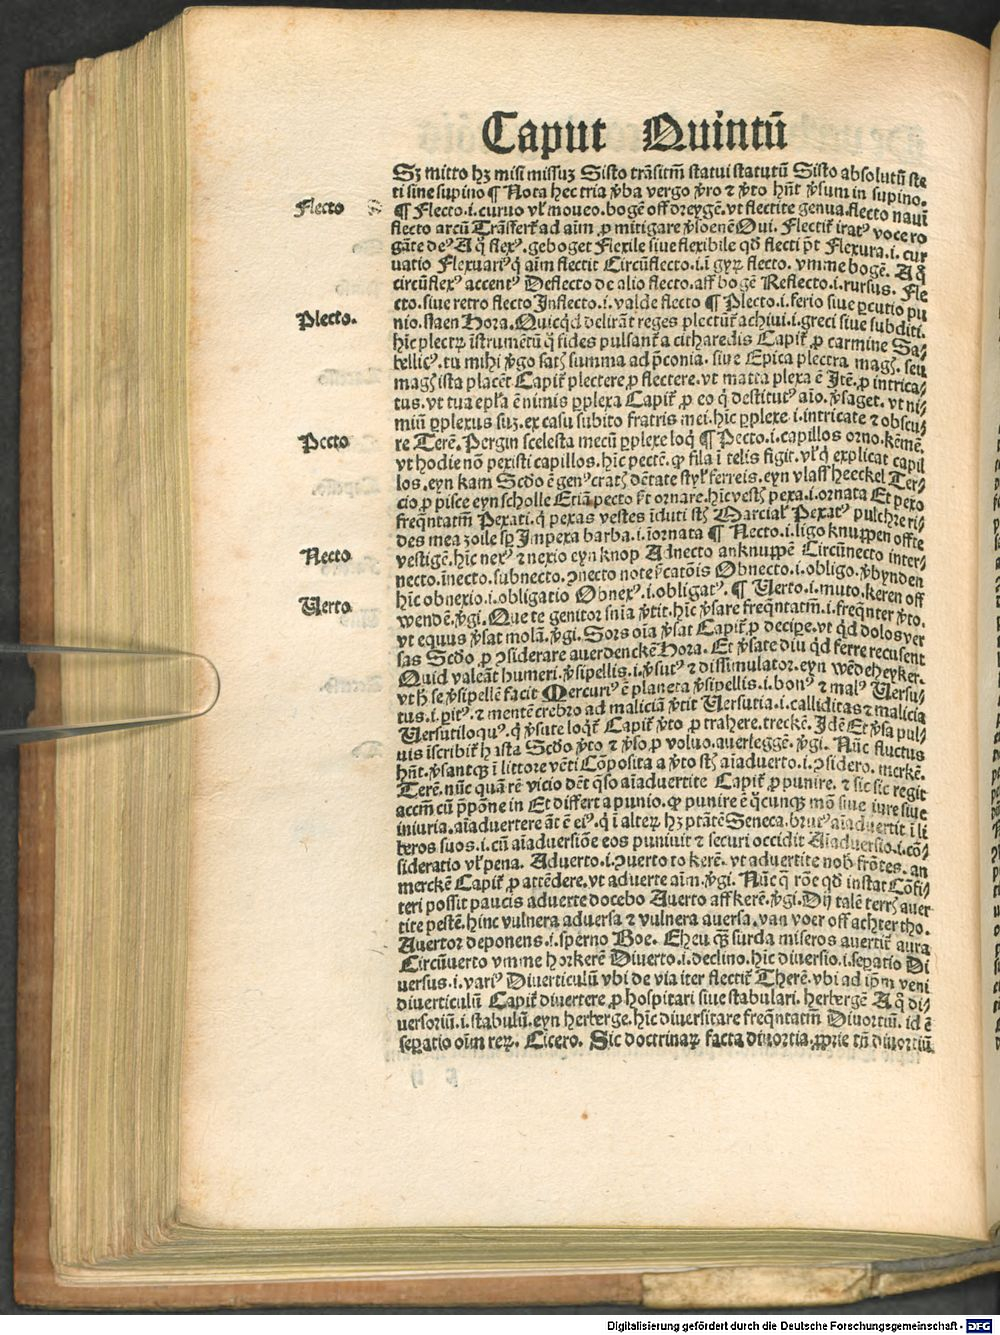 Caput Quintū
Sꝫ mitto hꝫ misi missuꝫ Sisto trāsitm̄ statui statutū Sisto absolutū ste
ti sine supino ¶ Nota hec tria v̄ba vergo v̄ro ⁊ v̄to hn̄t v̄sum in supino.
Flecto
¶ Flecto.i.curuo vl̕ moueo.bogē off dreygē.vt flectite genua.flecto nauī
flecto arcū Trāsfert̕ ad aīm ꝓ mitigare Oui. Flectit̕ iratꝰ voce ro
gāte deꝰ A q̄ flexꝰ.geboget Flexile siue flexibile qd̄ flecti pt̄ Flexura.i.cur
uatio Flexuariꝰ q̄ aīm flectit Circūflecto.i.ī gyꝝ flecto. vmme bogē. A q̄
circūflexꝰ accentꝰ Deflecto de alio flecto.aff bogē Reflecto.i.rursus. Fle
cto.siue retro flecto Inflecto.i.valde flecto ¶ Plecto.i.ferio siue ꝑcutio pu
Plecto.
nio.staen Hora.Quicqd̄ delirāt reges plectūt̕ achiui.i.greci siue subditi.
hīc plectꝝ īstrumētū q̄ fides pulsant̕ a citharedis Capit̕ ꝓ carmine Sa⸗
bellicꝰ.tu mihi v̄go summa ad p̄conia.siue Epica plectra seu
ista placēt Capit̕ plectere ꝓ flectere.vt matta plexa ē Itē.ꝓ intrica⸗
tus.vt tua epl̄a ē nimis ꝑplexa Capit̕ ꝓ eo q̄ destitutꝰ aīo.v̄saget.vt ni⸗
miū ꝑplexus suꝫ.ex casu subito fratris mei.hīc ꝑplexe.i.intricate ⁊ obscu⸗
Pecto
re Terē.Pergin scelesta mecū ꝑplexe loq̄ ¶ Pecto.i.capillos orno.kēmē.
vt hodie nō pexisti capillos.hīc pectē.ꝙ fila ī telis figit.vl̕ q̄ explicat capil
los.eyn kam Scd̄o ē genꝰ dētate styl̕ ferreis.eyn vlass heeckel Ter⸗
cio ꝓ pisce eyn scholle Etiā pecto ornare.hīc pexa.i.ornata Et pexo
freq̄ntatm̄ Pexati.q̄ pexas vestes īduti Marcial̕ Pexatꝰ pulchre ri⸗
des mea zoile Impexa barba.i.īornata ¶ Necto.i.ligo knuppen offte
Necto
vestigē.hīc nexꝰ ⁊ nexio eyn knop Adnecto anknuppē Circūnecto inter⸗
necto.īnecto.subnecto.ꝯnecto note Obnecto.i.obligo.v̄bynden
hīc obnexio.i.obligatio Obnexꝰ.i.obligatꝰ. ¶ Uerto.i.muto.keren off
Uerto
wendē.v̄gi.Que te genitor v̄tit.hīc v̄sare freq̄ntatm̄.i.freq̄nter v̄to.
vt equus v̄sat molā.v̄gi.Sors oīa v̄sat Capit̕ ꝓ decipe.vt qd̄ dolos ver
sas Scd̄o ꝓ ꝯsiderare auerdenckē Hora. Et v̄sate diu qd̄ ferre recusent
Quid valeāt humeri.v̄sipellis.i.v̄sutꝰ ⁊ dissimulator.eyn wēdeheyker.
vt h̄ se v̄sipellē facit Mercuriꝰ ē planeta v̄sipellis.i.bonꝰ ⁊ malꝰ Uersu⸗
tus.i.ꝑitꝰ.⁊ mentē crebro ad maliciā v̄tit Uersutia.i.calliditas ⁊ malicia
Uersutiloquꝰ.q̄ v̄sute loqt̕ Capit̕ v̄to ꝓ trahere.treckē.Idē Et v̄sa pul⸗
uis īscribit̕ hasta Scd̄o v̄to ⁊ v̄so ꝓ voluo.auerleggē.v̄gi. Nūc fluctus
hn̄t.v̄santqꝫ ī littore vēti Cōposita a v̄to aīaduerto.i.ꝯsidero.merkē.
Terē.nūc quā rē vicio dēt q̄so aīaduertite Capit̕ ꝓ punire.⁊ sic sic regit
accm̄ cū p̄pōne in Et differt a punio.ꝙ punire ē q̄cunqꝫ mō siue iure siue
iniuria.aīaduertere āt ē eiꝰ.q̄ ī alteꝝ hꝫ ptātē Seneca.brutꝰ aīaduertit ī li
beros suos.i.cū aīaduersiōe eos puniuit ⁊ securi occidit Aīaduersio.i.cō⸗
sideratio vl̕ pena. Aduerto.i.ꝯuerto to kerē.vt aduertite frōtes.an
merckē Capit̕ ꝓ attēdere.vt aduerte aīm.v̄gi. Nūc q̄ rōe qd̄ instat Cōfi⸗
teri possit paucis aduerte docebo Auerto aff kerē.v̄gi.Dij talē auer
tite pestē.hinc vulnera aduersa ⁊ vulnera auersa.van voer off achter tho.
Auertor deponens.i.sperno Boe. Eheu surda miseros auertit̕ aura
Circūuerto vmme herkerē Diuerto.i.declino.hīc diuersio.i.seꝑatio Di
uersus.i.variꝰ Diuerticulū vbi de via iter flectit̕ Therē.vbi ad ip̄m veni
diuerticulū Capit̕ diuertere ꝓ hospitari siue stabulari.herbergē A q̄ di⸗
uersoriū.i.stabulū.eyn herberge.hīc diuersitare freq̄ntatm̄ Diuortiū.id ē
seꝑatio oīm reꝝ. Cicero. Sic doctrinaꝝ facta diuortia.ꝓprie tn̄ diuortiū
Digitalisierung gefördert durch die Deutsche Forschungsgemeinschaft - DFG